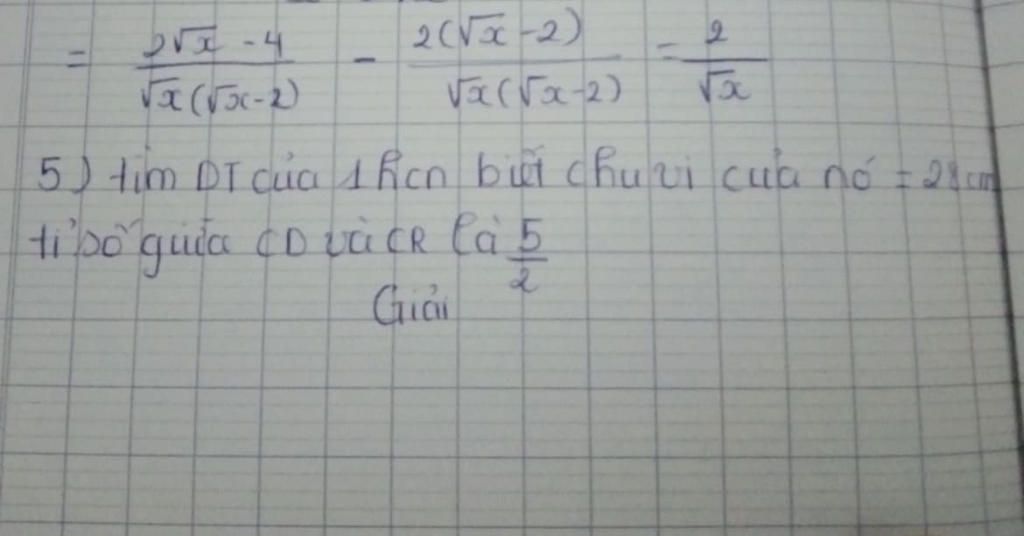 = \frac{2\sqrt{x} - 4}{\sqrt{x}(\sqrt{x}-2)} - \frac{2(\sqrt{x}-2)}{\sqrt{x}(\sqrt{x}-2)} = \frac{2}{\sqrt{x}}
5) tìm DT của 1 hcn biết chu vi của nó = 28cm
tỉ số giữa CD và CR là \frac{5}{2}
Giải